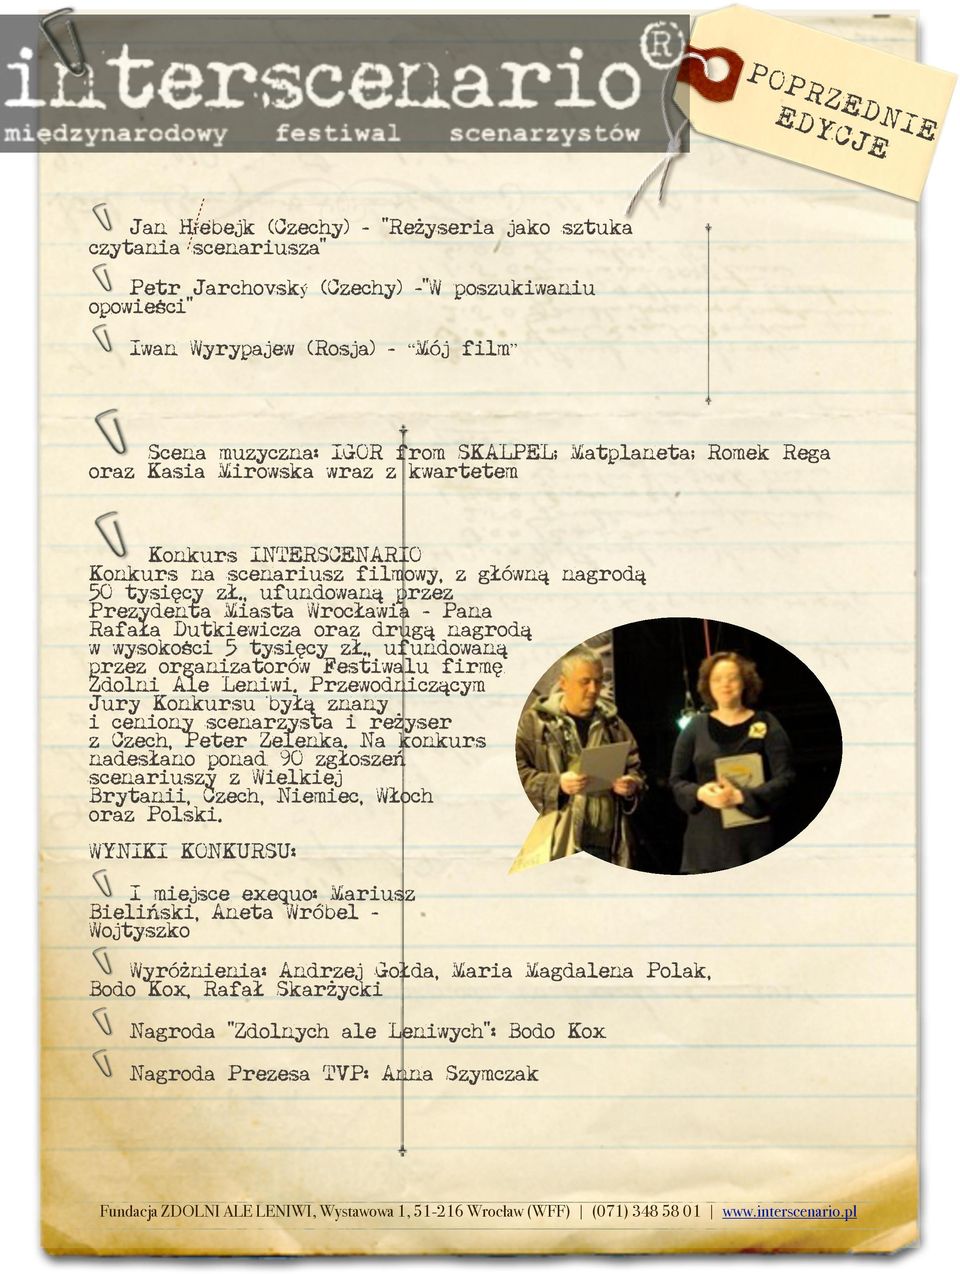 interscenario®
międzynarodowy festiwal scenarzystów
POPRZEDNIE
EDYCJE
Jan Hřebejk (Czechy) - "Reżyseria jako sztuka
czytania scenariusza"
Petr Jarchovský (Czechy) -"W poszukiwaniu
opowieści"
Iwan Wyrypajew (Rosja) - “Mój film”
Scena muzyczna: IGOR from SKALPEL; Matplaneta; Romek Rega
oraz Kasia Mirowska wraz z kwartetem
Konkurs INTERSCENARIO
Konkurs na scenariusz filmowy, z główną nagrodą
50 tysięcy zł., ufundowaną przez
Prezydenta Miasta Wrocławia - Pana
Rafała Dutkiewicza oraz drugą nagrodą
w wysokości 5 tysięcy zł., ufundowaną
przez organizatorów Festiwalu firmę
Zdolni Ale Leniwi. Przewodniczącym
Jury Konkursu był± znany
i ceniony scenarzysta i reżyser
z Czech, Peter Zelenka. Na konkurs
nadesłano ponad 90 zgłoszeń
scenariuszy z Wielkiej
Brytanii, Czech, Niemiec, Włoch
oraz Polski.
WYNIKI KONKURSU:
I miejsce exequo: Mariusz
Bieliński, Aneta Wróbel -
Wojtyszko
Wyróżnienia: Andrzej Gołda, Maria Magdalena Polak,
Bodo Kox, Rafał Skarżycki
Nagroda "Zdolnych ale Leniwych": Bodo Kox
Nagroda Prezesa TVP: Anna Szymczak
Fundacja ZDOLNI ALE LENIWI, Wystawowa 1, 51-216 Wrocław (WFF) | (071) 348 58 01 | www.interscenario.pl